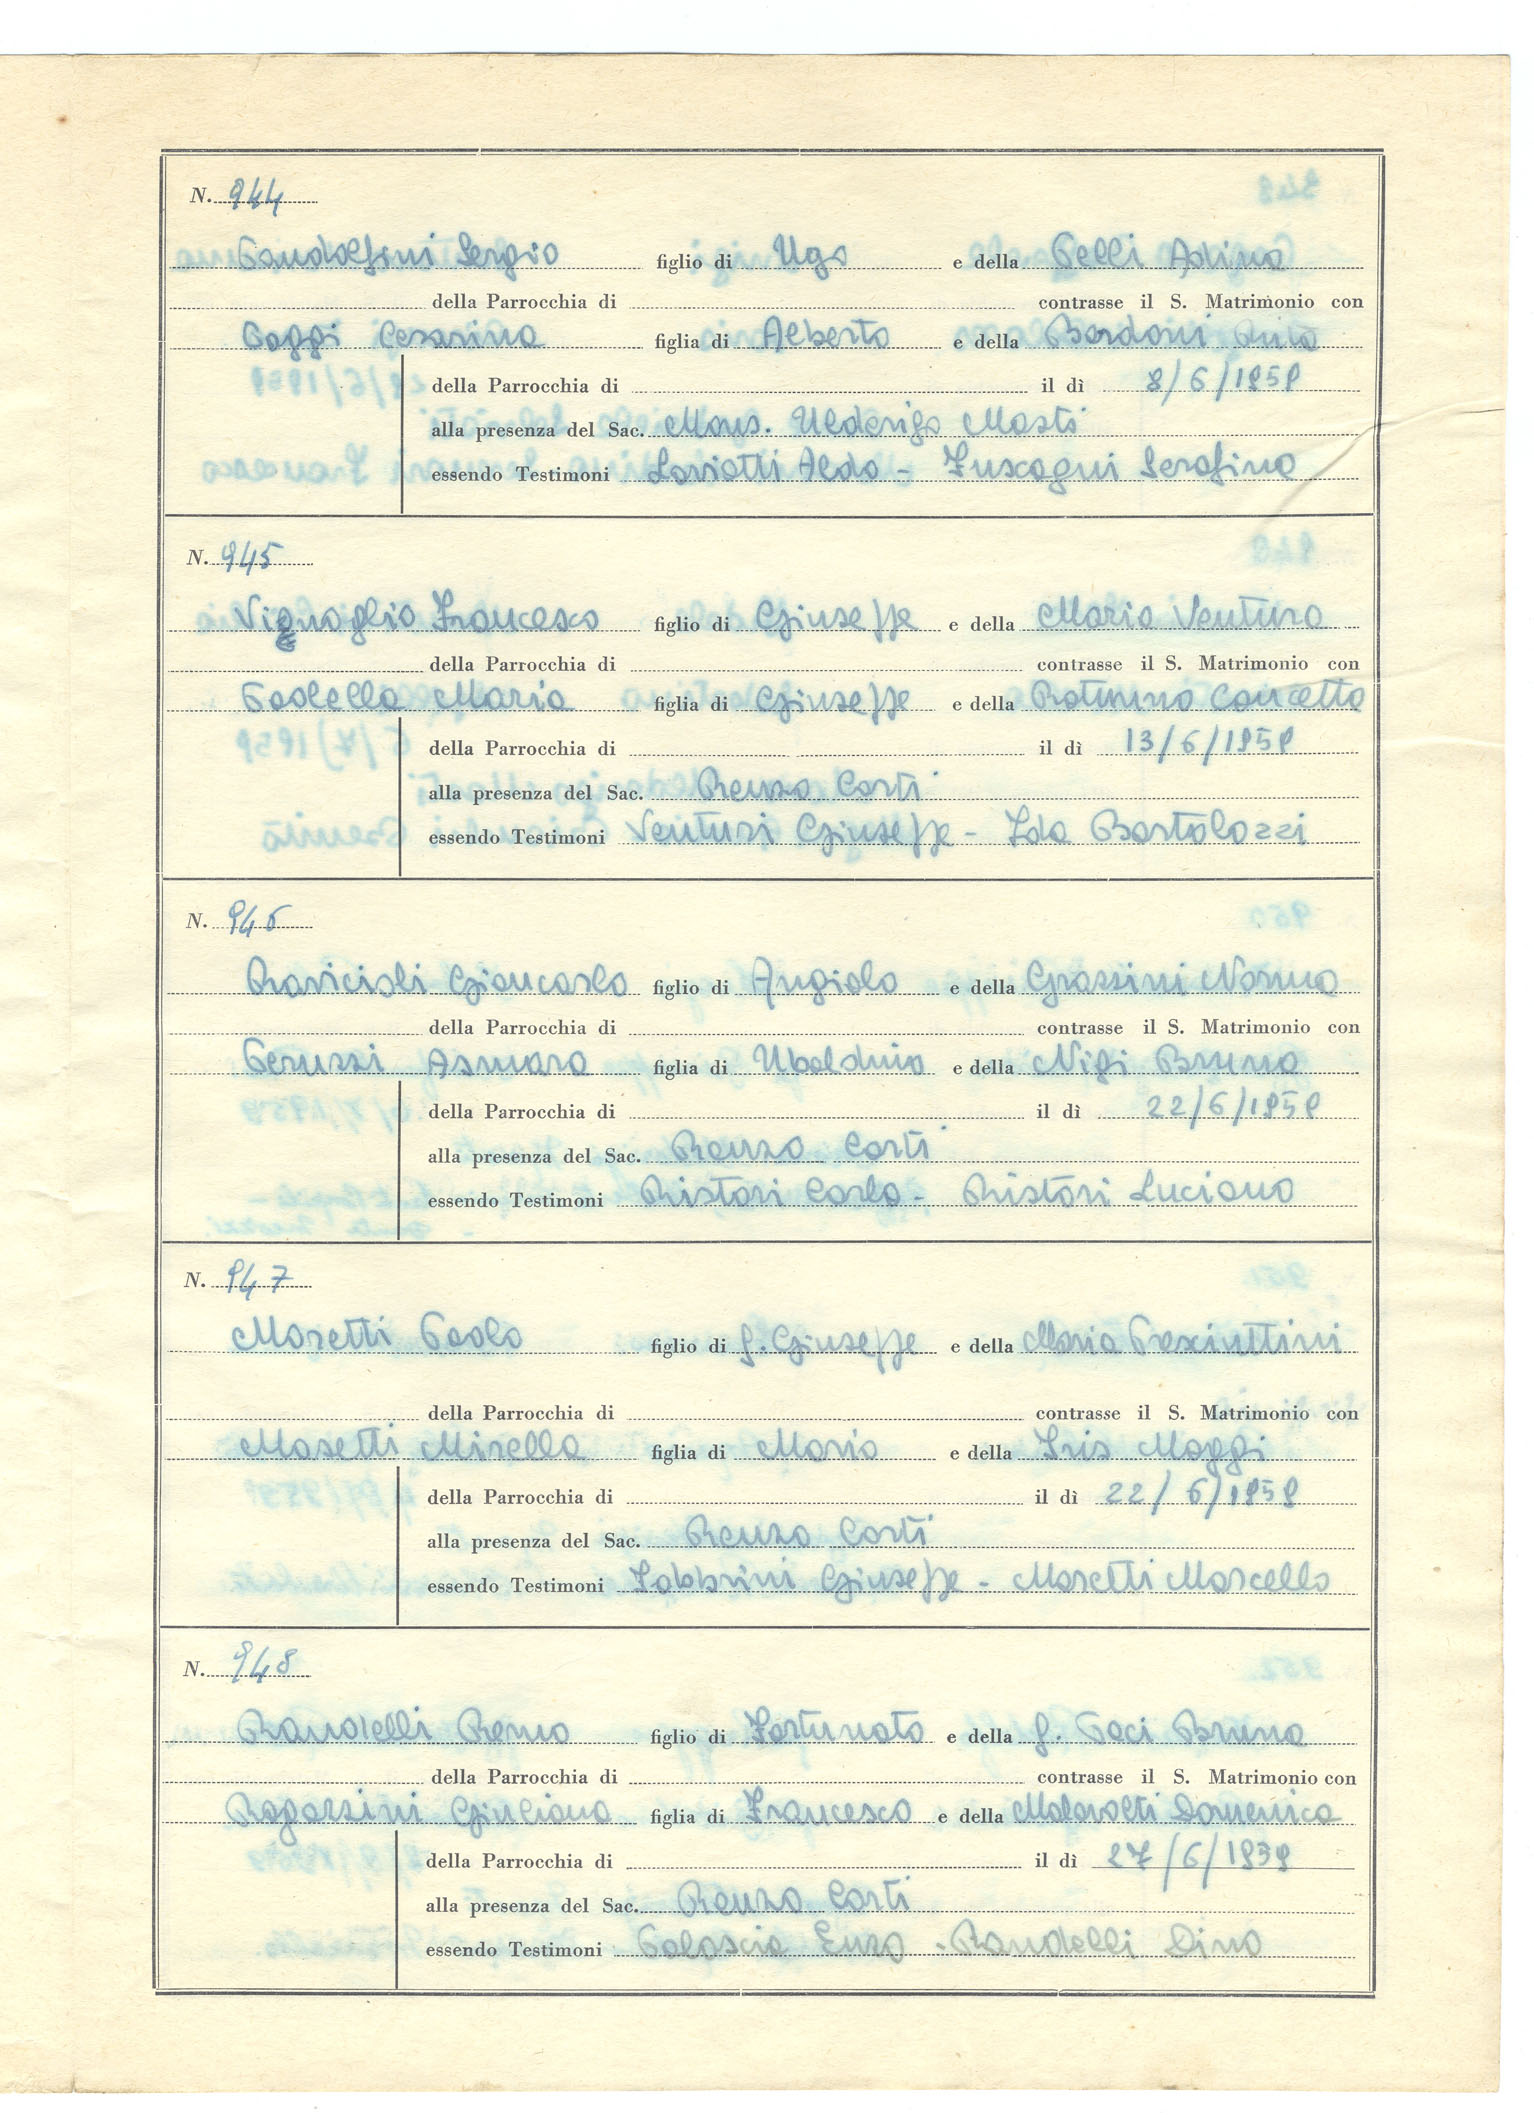 N. 944
Pandolfini Sergio figlio di Ugo e della Pelli Adina
della Parrocchia di contrasse il S. Matrimonio con
Poggi Cesarina figlia di Alberto e della Bardoni Rita
della Parrocchia di il dì 8/6/1959
alla presenza del Sac. Mons. Ulderigo Masti
essendo Testimoni Loriatti Aldo - Fuscagni Serafino
N. 945
Francesco figlio di Giuseppe e della Maria Ventura
della Parrocchia di contrasse il S. Matrimonio con
Padella Maria figlia di Giuseppe e della Concetta
della Parrocchia di il dì 13/6/1959
alla presenza del Sac. Renzo Corti
essendo Testimoni Venturi Giuseppe - Ida Bartolozzi
N. 946
Ravicioli Giancarlo figlio di Angiolo e della Grazzini Norma
della Parrocchia di contrasse il S. Matrimonio con
Peruzzi Asmara figlia di e della Nigi Bruna
della Parrocchia di il dì 22/6/1959
alla presenza del Sac. Renzo Corti
essendo Testimoni Ristori Carlo - Ristori Luciano
N. 947
Moretti Paolo figlio di f. Giuseppe e della Maria
della Parrocchia di contrasse il S. Matrimonio con
Masetti Mirella figlia di Mario e della Iris Maggi
della Parrocchia di il dì 22/6/1959
alla presenza del Sac. Renzo Corti
essendo Testimoni Fabbrini Giuseppe - Moretti Marcello
N. 948
Randelli Remo figlio di Fortunato e della f. Paci Bruna
della Parrocchia di contrasse il S. Matrimonio con
Ragazzini Giuliana figlia di Francesco e della Malavolti Domenica
della Parrocchia di il dì 27/6/1939
alla presenza del Sac. Renzo Corti
essendo Testimoni Palascia Enzo - Randelli Dino